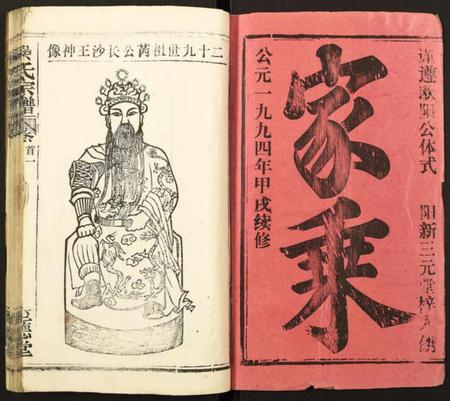 谨遵欧阳公体式 阳新三元堂梓人
家乘
公元一九九四年甲戌续修
二十九世祖芮公长沙王神像
吴氏宗谱 卷首一
堂